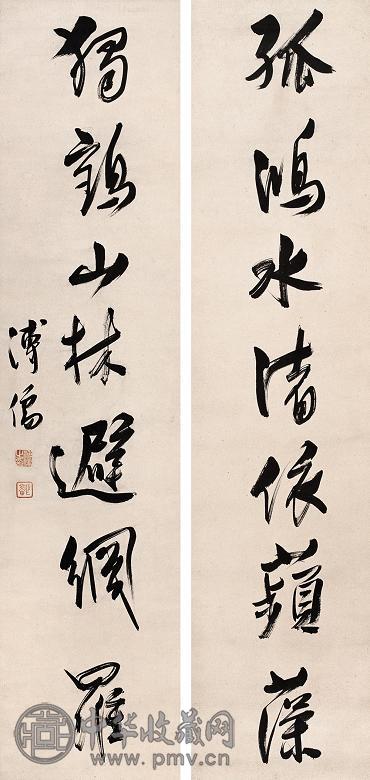 孤鴻水渚依蘋藻
獨鶴山林避網羅
溥儒
中华收藏网
www.pmv.cn